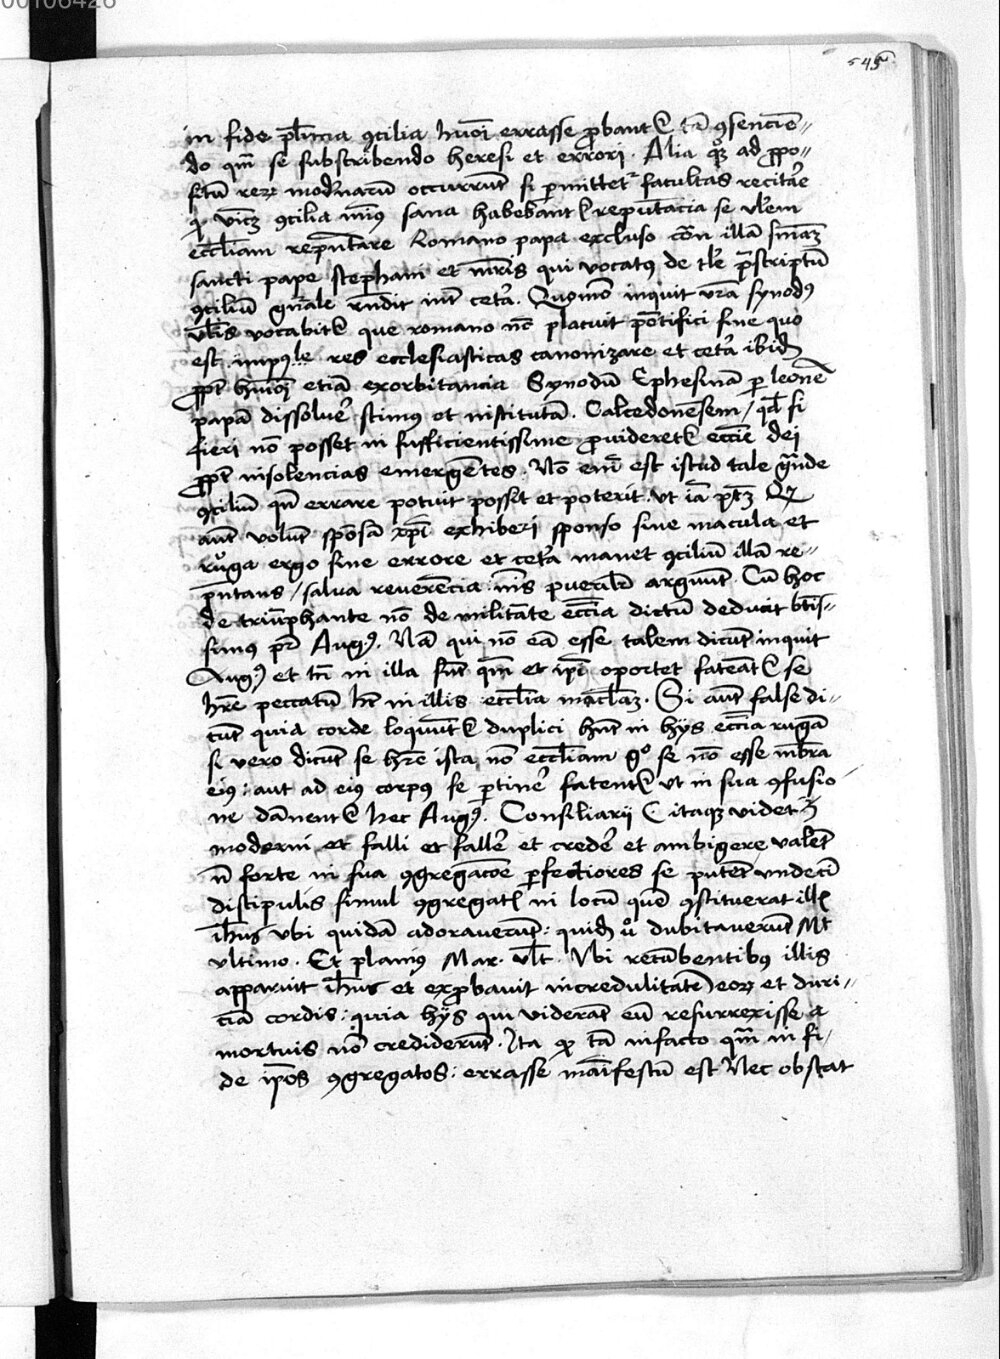 00106426
545
in fide pl̄ima ꝯcilia hm̄oi errasse ꝓbantᷣ tā ꝯsencien〃
do qm̄ se subscribendo heresi et errori. Alia qꝫ ad ꝓpo〃
sitū reꝝ modernarū occurrūt si ꝑmittetᷣ facultas recitare
ꝯcilia sana habebant reputacia se vl̄em
eccl̄iam rep̄ntare Romano papa excluso illā
sancti pape stephani et mr̄is qui vocatꝰ de tl̄e p̄scriptū
ꝯciliū gn̄ale rn̄dit int̄ ceta. Quomō inquit vr̄a synodꝰ
vl̄is vocabitᷣ que romano nō placuit pōtifici sine quo
est res ecclesiasticas canonizare et ceta ibid̄
ꝓpt̄ hm̄oi etiā exorbitancia Synodū Ephesinā ꝑ leonē
papā dissolui scimus et institutā. Calcedonēsem/ qd̄ si
fieri nō posset in sufficientissime ꝓvideretᷣ eccl̄ie dei
ꝓpt̄ insolencias emergētes. Nō eni est istud tale gn̄ale
ꝯciliū qn̄ errare potuit possit et poterit. ut iā
aut̄ volūt spōsā xp̄i exhiberi sponso sine macula et
ruga ergo sine errore et ceta manet ꝯciliū illā re〃
p̄ntans / salva reverencia pueril̄r arguūt. Cū hoc
de triūphante nō de militāte eccl̄ia dictū deducit btīs〃
simus pr̄ Augꝰ. Nā qui nō eā esse talem dicūt inquit
Augꝰ et tn̄ in illa sūt qm̄ et ip̄i oportet fateātᷣ se
hr̄e peccatū hēt in illis eccl̄ia maclaꝫ. Si aut̄ false di〃
cūt quia corde loquūtᷣ duplici hēt in hijs eccl̄ia rugā
si vero dicūt se hr̄e ista nō eccl̄iam gº se nō esse mēbra
eiꝰ: aut ad eiꝰ corpus se ꝑtinē fatentᷣ ut in sua ꝯfusio
ne dānentᷣ hec Augꝰ. Consiliarij itaqꝫ videtᷣ
moderni et falli et fallē et credē et ambigere valēt
n̄ forte in sua ꝯgregacōe ꝑfectiores se putēt undecī
discipulis simul ꝯgregatꝭ in locū quē ꝯstituerat illꝭ
ih̄us ubi quidā adoraverūt: quidā vº dubitaverūt Mt
ultimo. Et planiꝰ Mar. ult̄. Ubi recūbentibꝰ illis
apparuit ih̄us et exꝓbavit incredulitatē eoꝝ et duri〃
ciā cordis: quia hijs qui viderāt eū resurrexisse a
mortuis nō crediderūt. Ita ꝙ tā in facto qm̄ in fi/
de ip̄os ꝯgregatos: errasse māifestū est Nec obstat